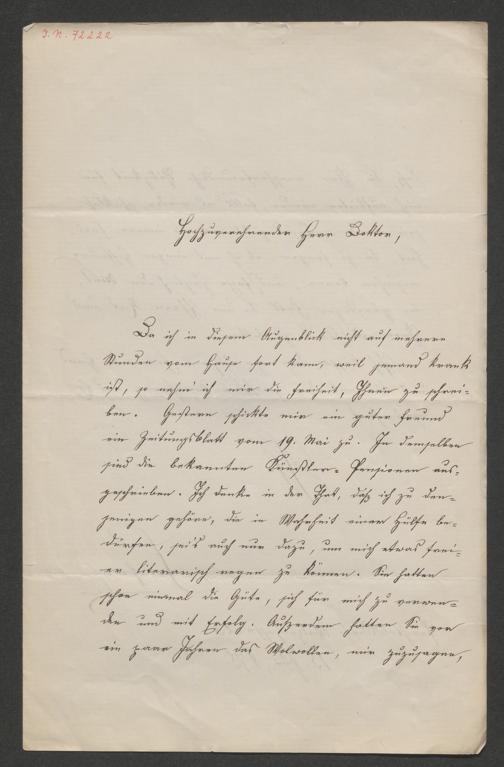 J. N. 72222
Hochzuverehrender Herr Doktor,
Da ich in diesem Augenblick nicht auf mehrere
Stunden vom Hause fort kann, weil jemand krank
ist, so nehm' ich mir die Freiheit, Ihnen zu schrei-
ben. Gestern schickte mir ein guter Freund
ein Zeitungsblatt vom 19. Mai zu. In demselben
sind die bekannten Künstler-Pensionen aus-
geschrieben. Ich denke in der That, daß ich zu den-
jenigen gehöre, die in Wahrheit einer Hülfe be-
dürfen, sei's auch nur dazu, um mich etwas frei-
er literarisch regen zu können. Sie hatten
schon einmal die Güte, sich für mich zu verwen-
den und mit Erfolg. Außerdem hatten Sie vor
ein paar Jahren das Wolwollen, mir zuzusagen,